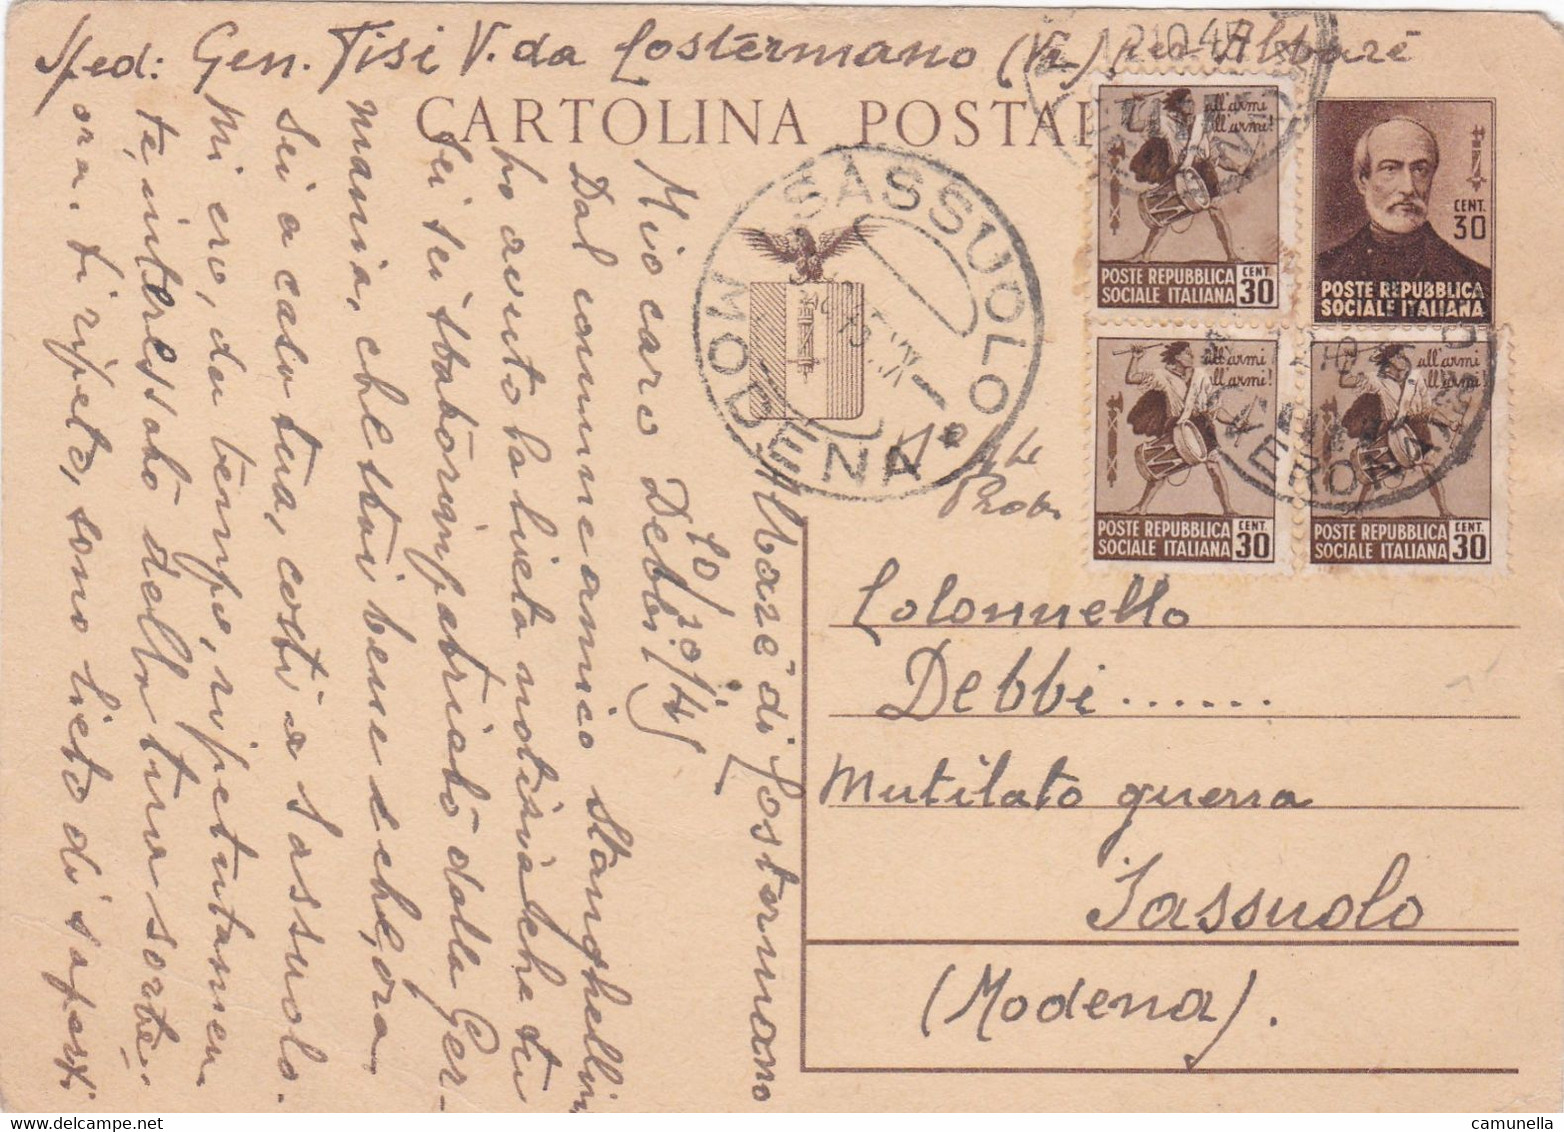 Sped: Gen. Tisi V. da Costermano (Vr) per Albarè
CARTOLINA POSTALE
12 10 45
all'armi
all'armi!
POSTE REPUBBLICA
SOCIALE ITALIANA
CENT.
30
CENT.
30
POSTE REPUBBLICA
SOCIALE ITALIANA
all'armi
all'armi!
POSTE REPUBBLICA
SOCIALE ITALIANA
CENT.
30
all'armi
all'armi!
POSTE REPUBBLICA
SOCIALE ITALIANA
CENT.
30
VERONA
SASSUOLO
MODENA
Colonnello
Debbi ......
Mutilato guerra
Sassuolo
(Modena).
Albarè di Costermano
10/10/45
Mio caro Debbi,
Dal comune amico Stanghellini
ho avuto la lieta notizia che tu
sei rimpatriato dalla Ger-
mania, che stai bene e che, ora
sei a casa tua, costì a Sassuolo.
Mi ero, da tempo, ripetutamen
te, interessato della tua sorte;
ora, ti ripeto, sono lieto di saperti
camunella